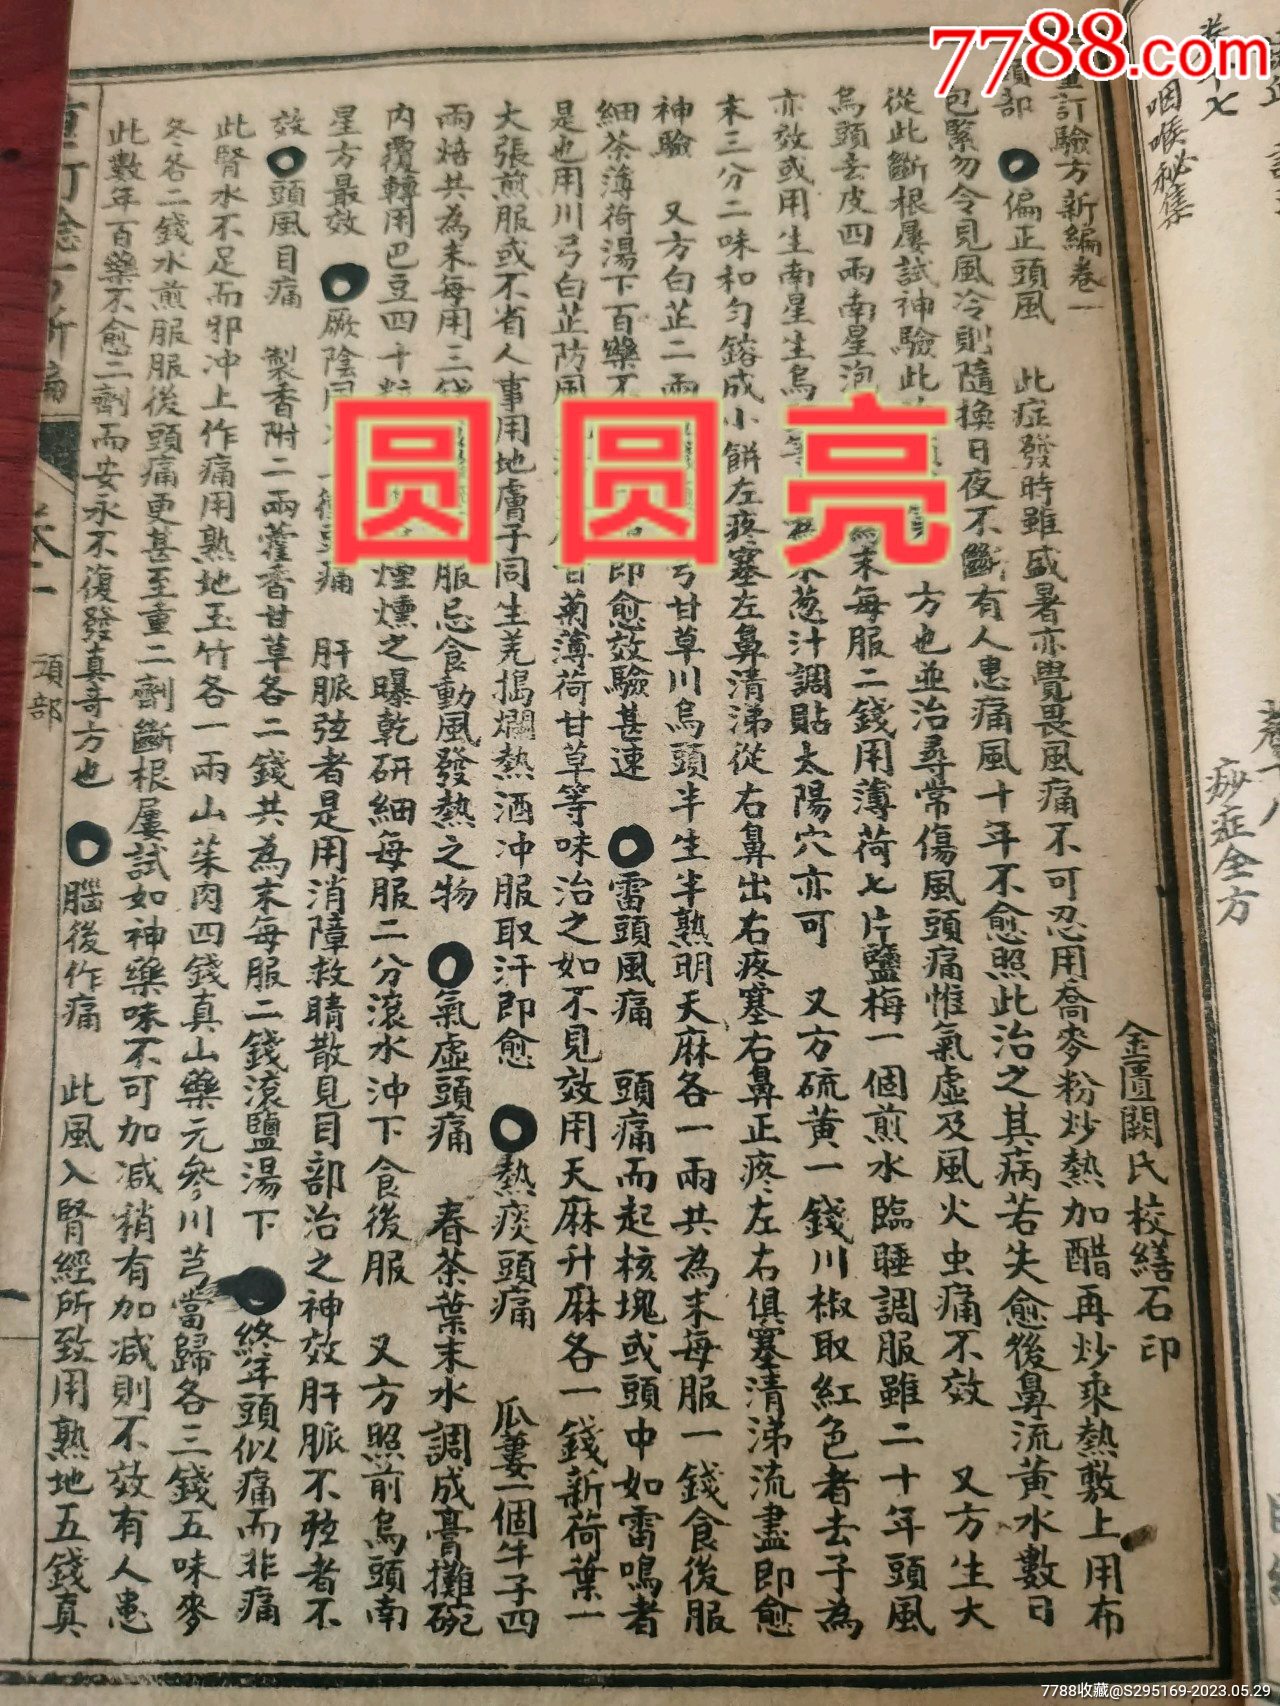 7788.com
卷十七
咽喉秘集
痧症全方
重訂驗方新編卷一
金匱闕氏校繕石印
頭部 偏正頭風 此症發時雖盛暑亦覺畏風痛不可忍用蕎麥粉炒熱加醋再炒乘熱敷上用布
包緊勿令見風冷則隨換日夜不斷有人患痛風十年不愈照此治之其病若失愈後鼻流黃水數日
從此斷根屢試神驗此 方也並治尋常傷風頭痛惟氣虛及風火虫痛不效 又方生大
烏頭去皮四兩南星泡 末每服二錢用薄荷七片鹽梅一個煎水臨睡調服雖二十年頭風
亦效或用生南星生烏 葱汁調貼太陽穴亦可 又方硫黃一錢川椒取紅色者去子為
末三分二味和勻鎔成小餅左疼塞左鼻清涕從右鼻出右疼塞右鼻正疼左右俱塞清涕流盡即愈
神驗 又方白芷二兩 甘草川烏頭半生半熟明天麻各一兩共為末每服一錢食後服
細茶薄荷湯下百藥不 即愈效驗甚速 雷頭風痛 頭痛而起核塊或頭中如雷鳴者
是也用川弓白芷防風 甘菊薄荷甘草等味治之如不見效用天麻升麻各一錢新荷葉一
大張煎服或不省人事用地膚子同生羌搗爛熱酒沖服取汗即愈 熱痰頭痛 瓜蔞一個牛子四
兩焙共為末每用三錢 服忌食動風發熱之物 氣虛頭痛 春茶葉末水調成膏攤碗
內覆轉用巴豆四十粒 煙燻之曝乾研細每服二分滾水沖下食後服 又方照前烏頭南
星方最效 厥陰 頭痛 肝脈弦者是用消障救睛散見目部治之神效肝脈不弦者不
效 頭風目痛 製香附二兩藿香甘草各二錢共為末每服二錢滾鹽湯下 終年頭似痛而非痛
此腎水不足而邪沖上作痛用熟地玉竹各一兩山茱肉四錢真山藥元參川芎當歸各三錢五味麥
冬各二錢水煎服服後頭痛更甚至重二劑斷根屢試如神藥味不可加減稍有加減則不效有人患
此數年百藥不愈二劑而安永不復發真奇方也 腦後作痛 此風入腎經所致用熟地五錢真
頭部
一
圆圆亮
7788收藏@S295169-2023.05.29